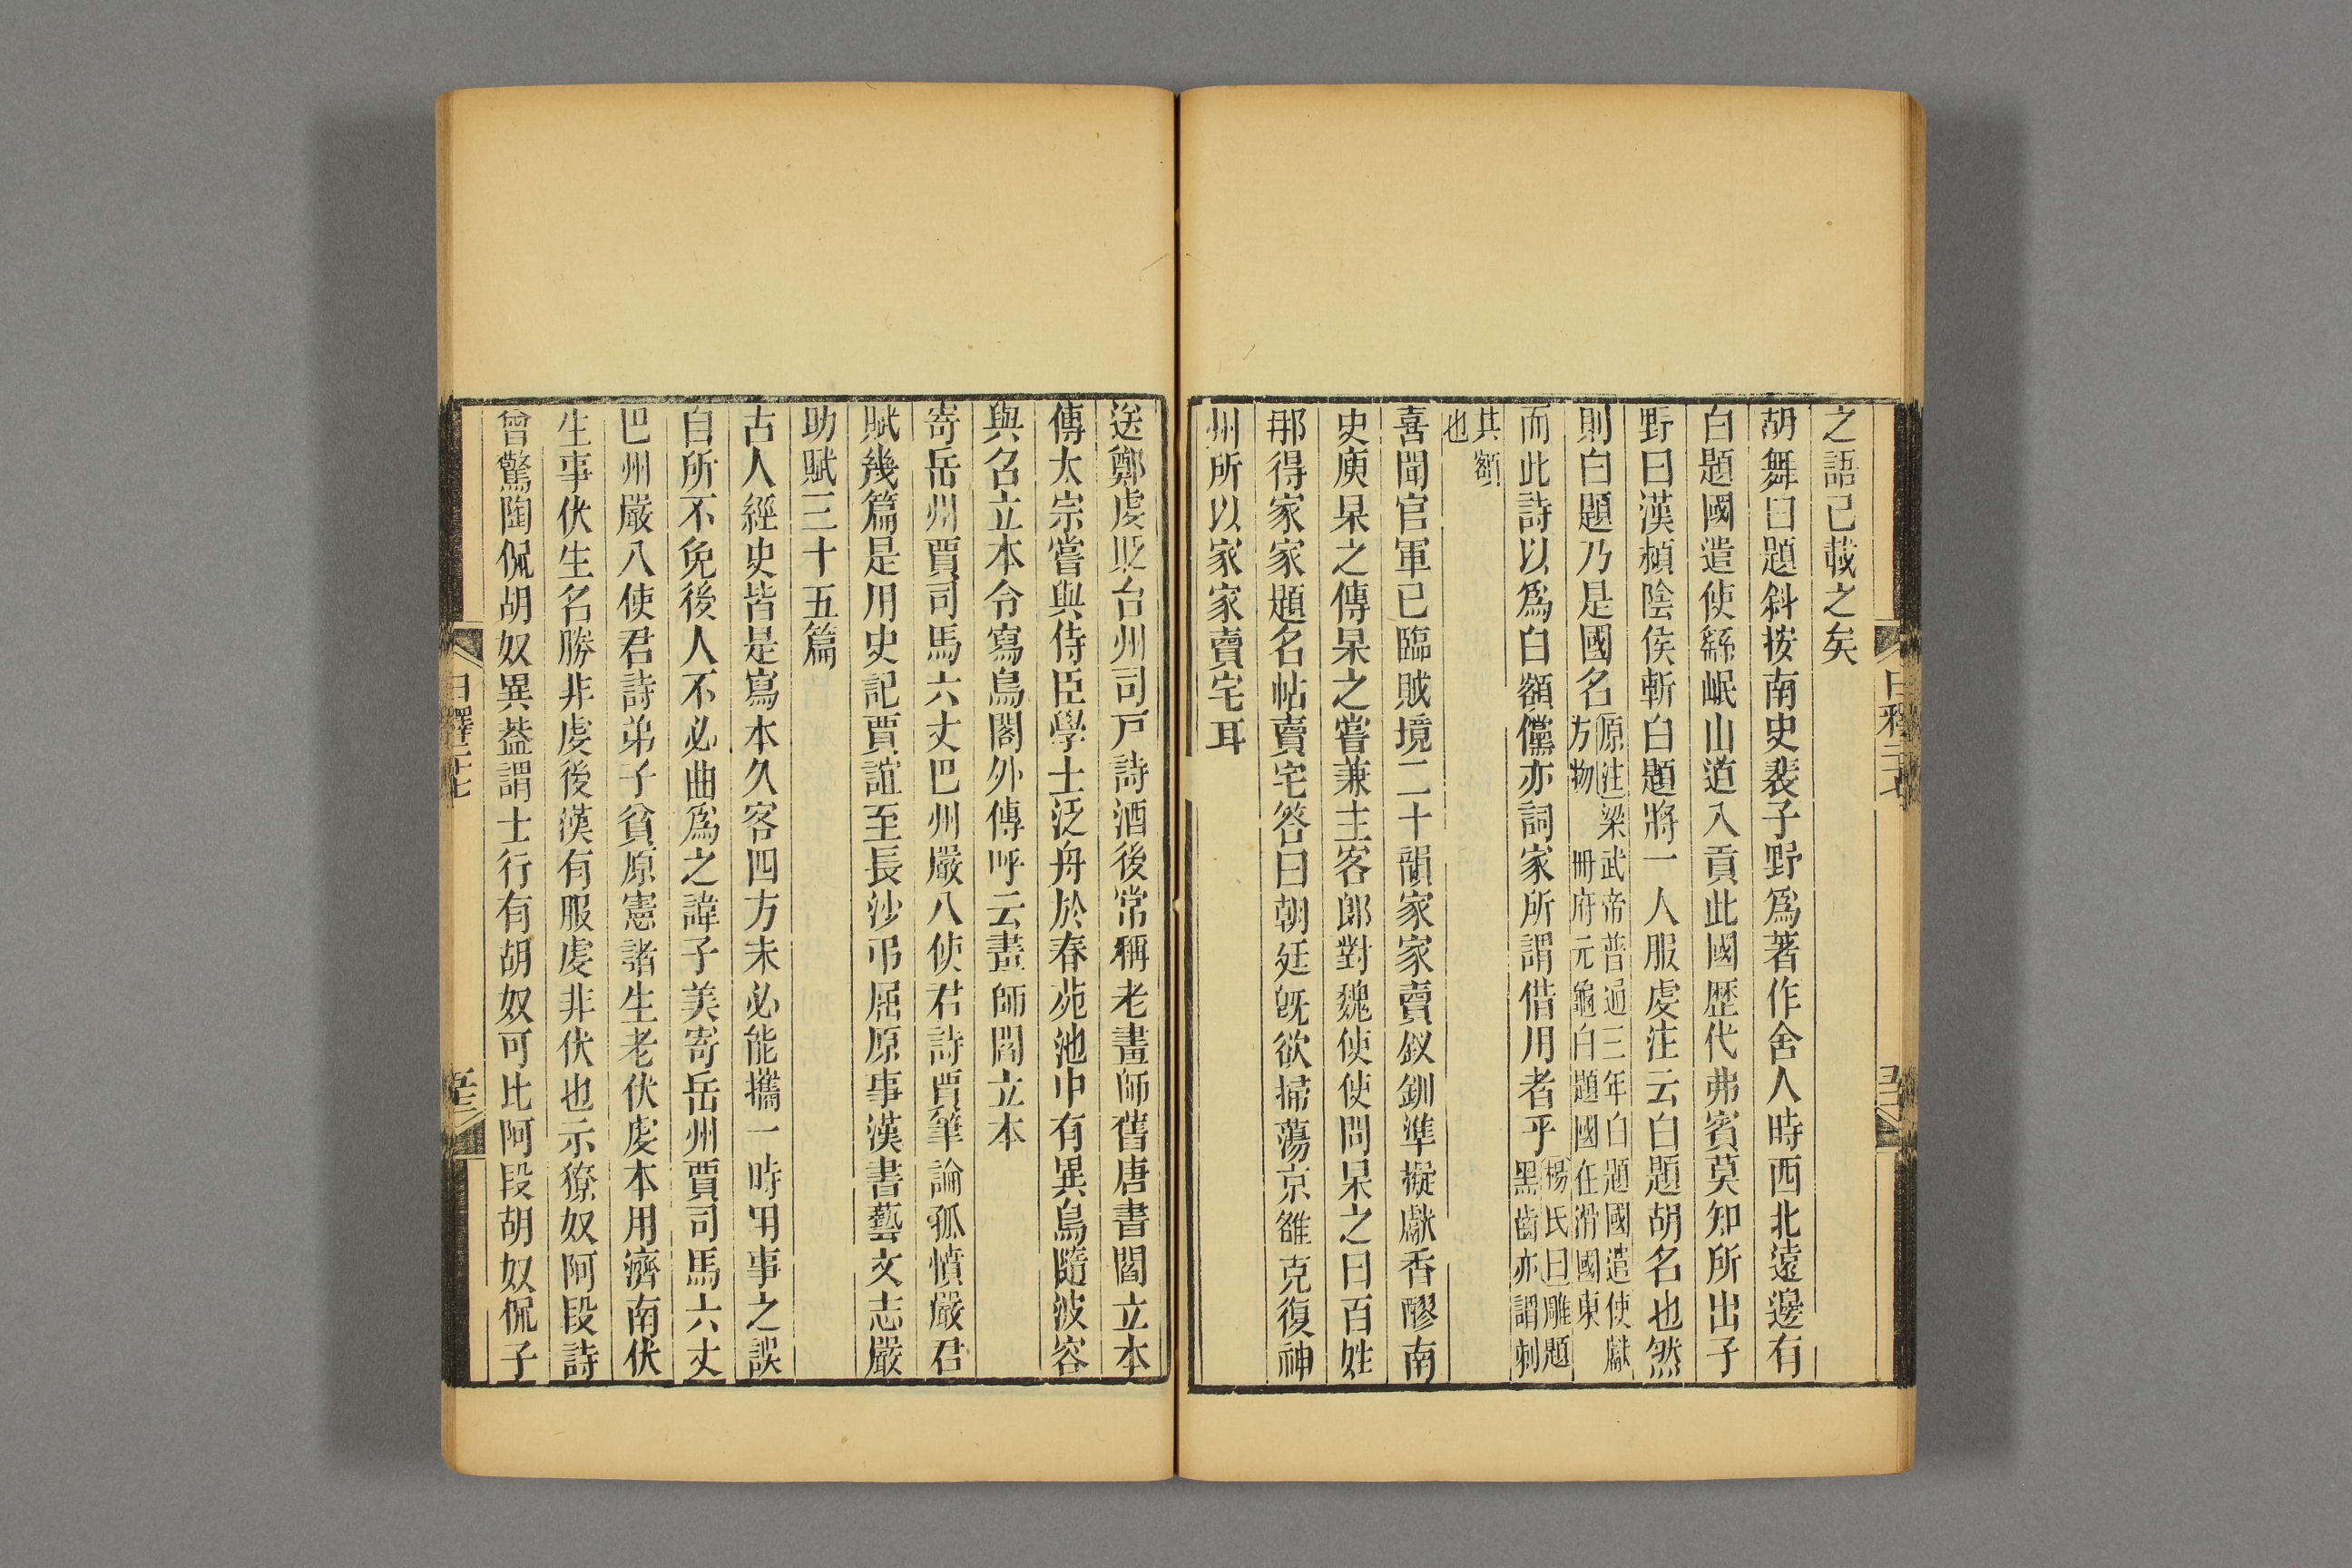 之語已載之矣
胡舞白題斜按南史裴子野爲著作舍人時西北遠邊有
白題國遣使繇岷山道入貢此國歷代弗賓莫知所出子
野曰漢潁陰侯斬白題將一人服虔注云白題胡名也然
則白題乃是國名原注梁武帝普通三年白題國遣使獻方物 冊府元龜白題國在滑國東
而此詩以爲白額儻亦詞家所謂借用者乎楊氏曰雕題黑齒亦謂刺
其額也
喜聞官軍已臨賊境二十韻家家賣釵釧準擬獻香醪南
史庾杲之傳杲之嘗兼主客郎對魏使使問杲之曰百姓
那得家家題名帖賣宅答曰朝廷旣欲掃蕩京雒克復神
州所以家家賣宅耳
送鄭虔貶台州司戸詩酒後常稱老畫師舊唐書閻立本
傳太宗嘗與侍臣學士泛舟於春苑池中有異鳥隨波容
與召立本令寫鳥閣外傳呼云畫師閻立本
寄岳州賈司馬六丈巴州嚴八使君詩賈筆論孤憤嚴君
賦幾篇是用史記賈誼至長沙弔屈原事漢書藝文志嚴
助賦三十五篇
古人經史皆是寫本久客四方未必能攜一時用事之誤
自所不免後人不必曲爲之諱子美寄岳州賈司馬六丈
巴州嚴八使君詩弟子貧原憲諸生老伏虔本用濟南伏
生事伏生名勝非虔後漢有服虔非伏也示獠奴阿段詩
曾驚陶侃胡奴異葢謂士行有胡奴可比阿段胡奴侃子